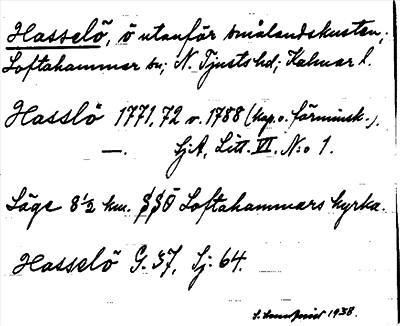 Hasselö, ö utanför smålandskusten,
Loftahammar sn; N. Tjusts hd; Kalmar l.
Hasslö 1771, 72 o. 1788 (kop. o. förminsk.).
—. SjA, Litt. VI. N:o 1.
Läge 8½ km. SSÖ Loftahammars kyrka.
Hasselö G. 37, Sj: 64.
1938.